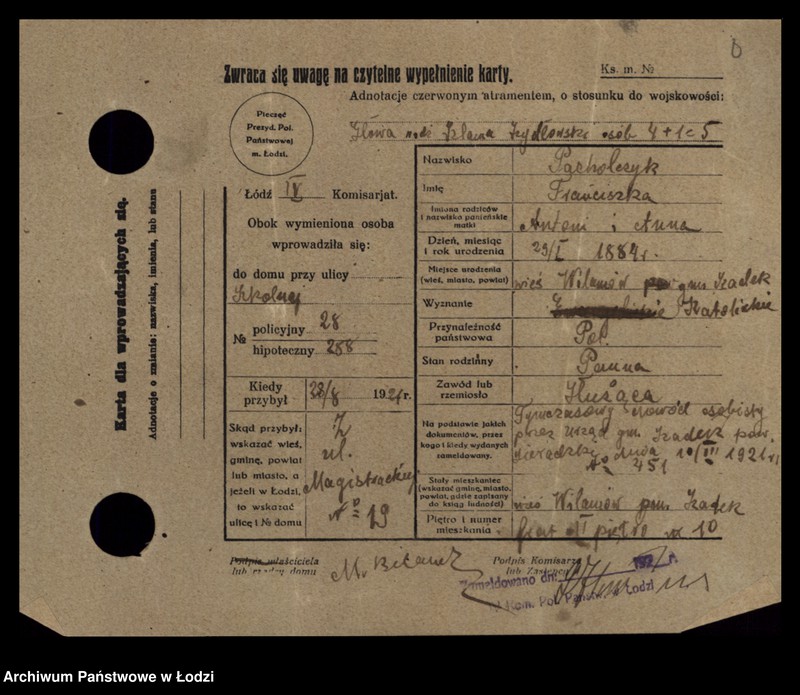 Zwraca się uwagę na czytelne wypełnienie karty.
Ks. m. №
Adnotacje czerwonym atramentem, o stosunku do wojskowości:
Pieczęć
Prezyd. Pol.
Państwowej
m. Łodzi.
Szlama Szydłowski osób 4+1=5
Łódź IV Komisarjat.
Obok wymieniona osoba
wprowadziła się:
do domu przy ulicy
Szkolnej
№ policyjny 28
hipoteczny 288
Kiedy przybył 28/8 1921 r.
Skąd przybył:
wskazać wieś,
gminę, powiat
lub miasto, a
jeżeli w Łodzi,
to wskazać
ulicę i № domu
Z
ul.
Magistrackiej
№ 19
Nazwisko Pacholczyk
Imię Franciszka
Imiona rodziców i nazwisko panieńskie matki Antoni i Anna
Dzień, miesiąc i rok urodzenia 29/I 1884 r.
Miejsce urodzenia (wieś, miasto, powiat) wieś Wilamów gm. Szadek
Wyznanie Katolickie
Przynależność państwowa Pol.
Stan rodzinny Panna
Zawód lub rzemiosło Służąca
Na podstawie jakich dokumentów, przez kogo i kiedy wydanych zameldowany.
Tymczasowy dowód osobisty
przez Urząd gm. Szadek pow.
sieradzki dnia 10/III 1921 r.
№ 451
Stały mieszkaniec (wskazać gminę, miasto, powiat, gdzie zapisany do ksiąg ludności) wieś Wilamów gm. Szadek
Piętro i numer mieszkania front II piętro m 10
Podpis właściciela
lub rządcy domu
Podpis Komisarza
lub Zastępcy
Zameldowano dn.
Kom. Pol. Państw. m. Łodzi
Karta dla wprowadzających się.
Adnotacje o zmianie: nazwiska, imienia, lub stanu
Archiwum Państwowe w Łodzi